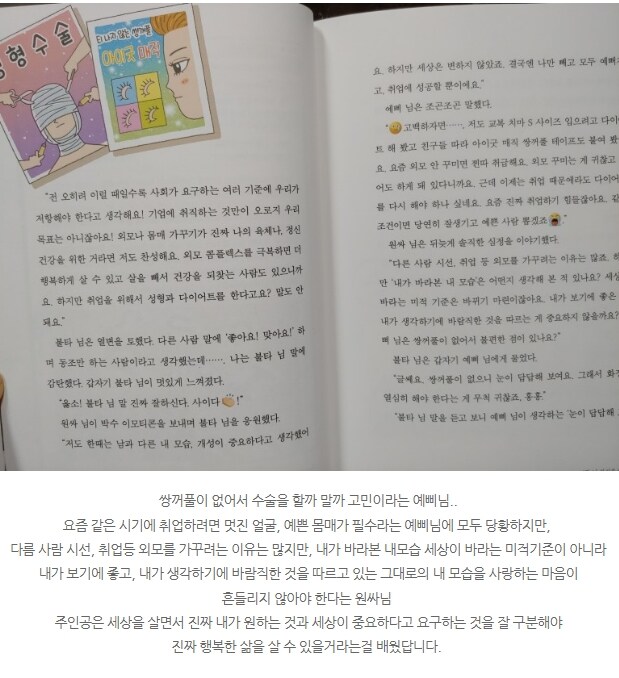 성형수술
티 나지 않는 쌍꺼풀
아이굿 매직
“전 오히려 이럴 때일수록 사회가 요구하는 여러 기준에 우리가
저항해야 한다고 생각해요! 기업에 취직하는 것만이 오로지 우리
목표는 아니잖아요! 외모나 몸매 가꾸기가 진짜 나의 육체나, 정신
건강을 위한 거라면 저도 찬성해요. 외모 콤플렉스를 극복하면 더
행복하게 살 수 있고 살을 빼서 건강을 되찾는 사람도 있으니까
요. 하지만 취업을 위해서 성형과 다이어트를 한다고요? 말도 안
돼요.”
불타 님은 열변을 토했다. 다른 사람 말에 ‘좋아요! 맞아요!’ 하
며 동조만 하는 사람이라고 생각했는데……. 나는 불타 님 말에
감탄했다. 갑자기 불타 님이 멋있게 느껴졌다.
“옳소! 불타 님 말 진짜 잘하신다. 사이다👏!”
원싸 님이 박수 이모티콘을 보내며 불타 님을 응원했다.
“저도 한때는 남과 다른 내 모습, 개성이 중요하다고 생각했어
요. 하지만 세상은 변하지 않았죠. 결국엔 나만 빼고 모두 예뻐
고, 취업에 성공할 뿐이에요.”
예삐 님은 조곤조곤 말했다.
“고백하자면……, 저도 교복 치마 S 사이즈 입으려고 다이
트 해 봤고 친구들 따라 아이굿 매직 쌍꺼풀 테이프도 붙여 봤
요. 요즘 외모 안 꾸미면 찐따 취급해요. 외모 꾸미는 게 귀찮고
어도 하게 돼 있다니까요. 근데 이제는 취업 때문에라도 다이어
를 다시 해야 하나 싶네요. 요즘 진짜 취업하기 힘들잖아요. 같
조건이면 당연히 잘생기고 예쁜 사람 뽑겠죠😭.”
원싸 님은 뒤늦게 솔직한 심정을 이야기했다.
“다른 사람 시선, 취업 등 외모를 가꾸려는 이유는 많죠. 하
만 ‘내가 바라본 내 모습’은 어떤지 생각해 본 적 있나요? 세상
바라는 미적 기준은 바뀌기 마련이잖아요. 내가 보기에 좋은
내가 생각하기에 바람직한 것을 따르는 게 중요하지 않을까요?
삐 님은 쌍꺼풀이 없어서 불편한 점이 있나요?”
불타 님은 갑자기 예삐 님에게 물었다.
“글쎄요, 쌍꺼풀이 없으니 눈이 답답해 보여요. 그래서 화장
열심히 해야 한다는 게 무척 귀찮죠, 흥흥.”
“불타 님 말을 듣고 보니 예삐 님이 생각하는 ‘눈이 답답해
쌍꺼풀이 없어서 수술을 할까 말까 고민이라는 예삐님..
요즘 같은 시기에 취업하려면 멋진 얼굴, 예쁜 몸매가 필수라는 예삐님에 모두 당황하지만,
다름 사람 시선, 취업등 외모를 가꾸려는 이유는 많지만, 내가 바라본 내모습 세상이 바라는 미적기준이 아니라
내가 보기에 좋고, 내가 생각하기에 바람직한 것을 따르고 있는 그대로의 내 모습을 사랑하는 마음이
흔들리지 않아야 한다는 원싸님
주인공은 세상을 살면서 진짜 내가 원하는 것과 세상이 중요하다고 요구하는 것을 잘 구분해야
진짜 행복한 삶을 살 수 있을거라는걸 배웠답니다.